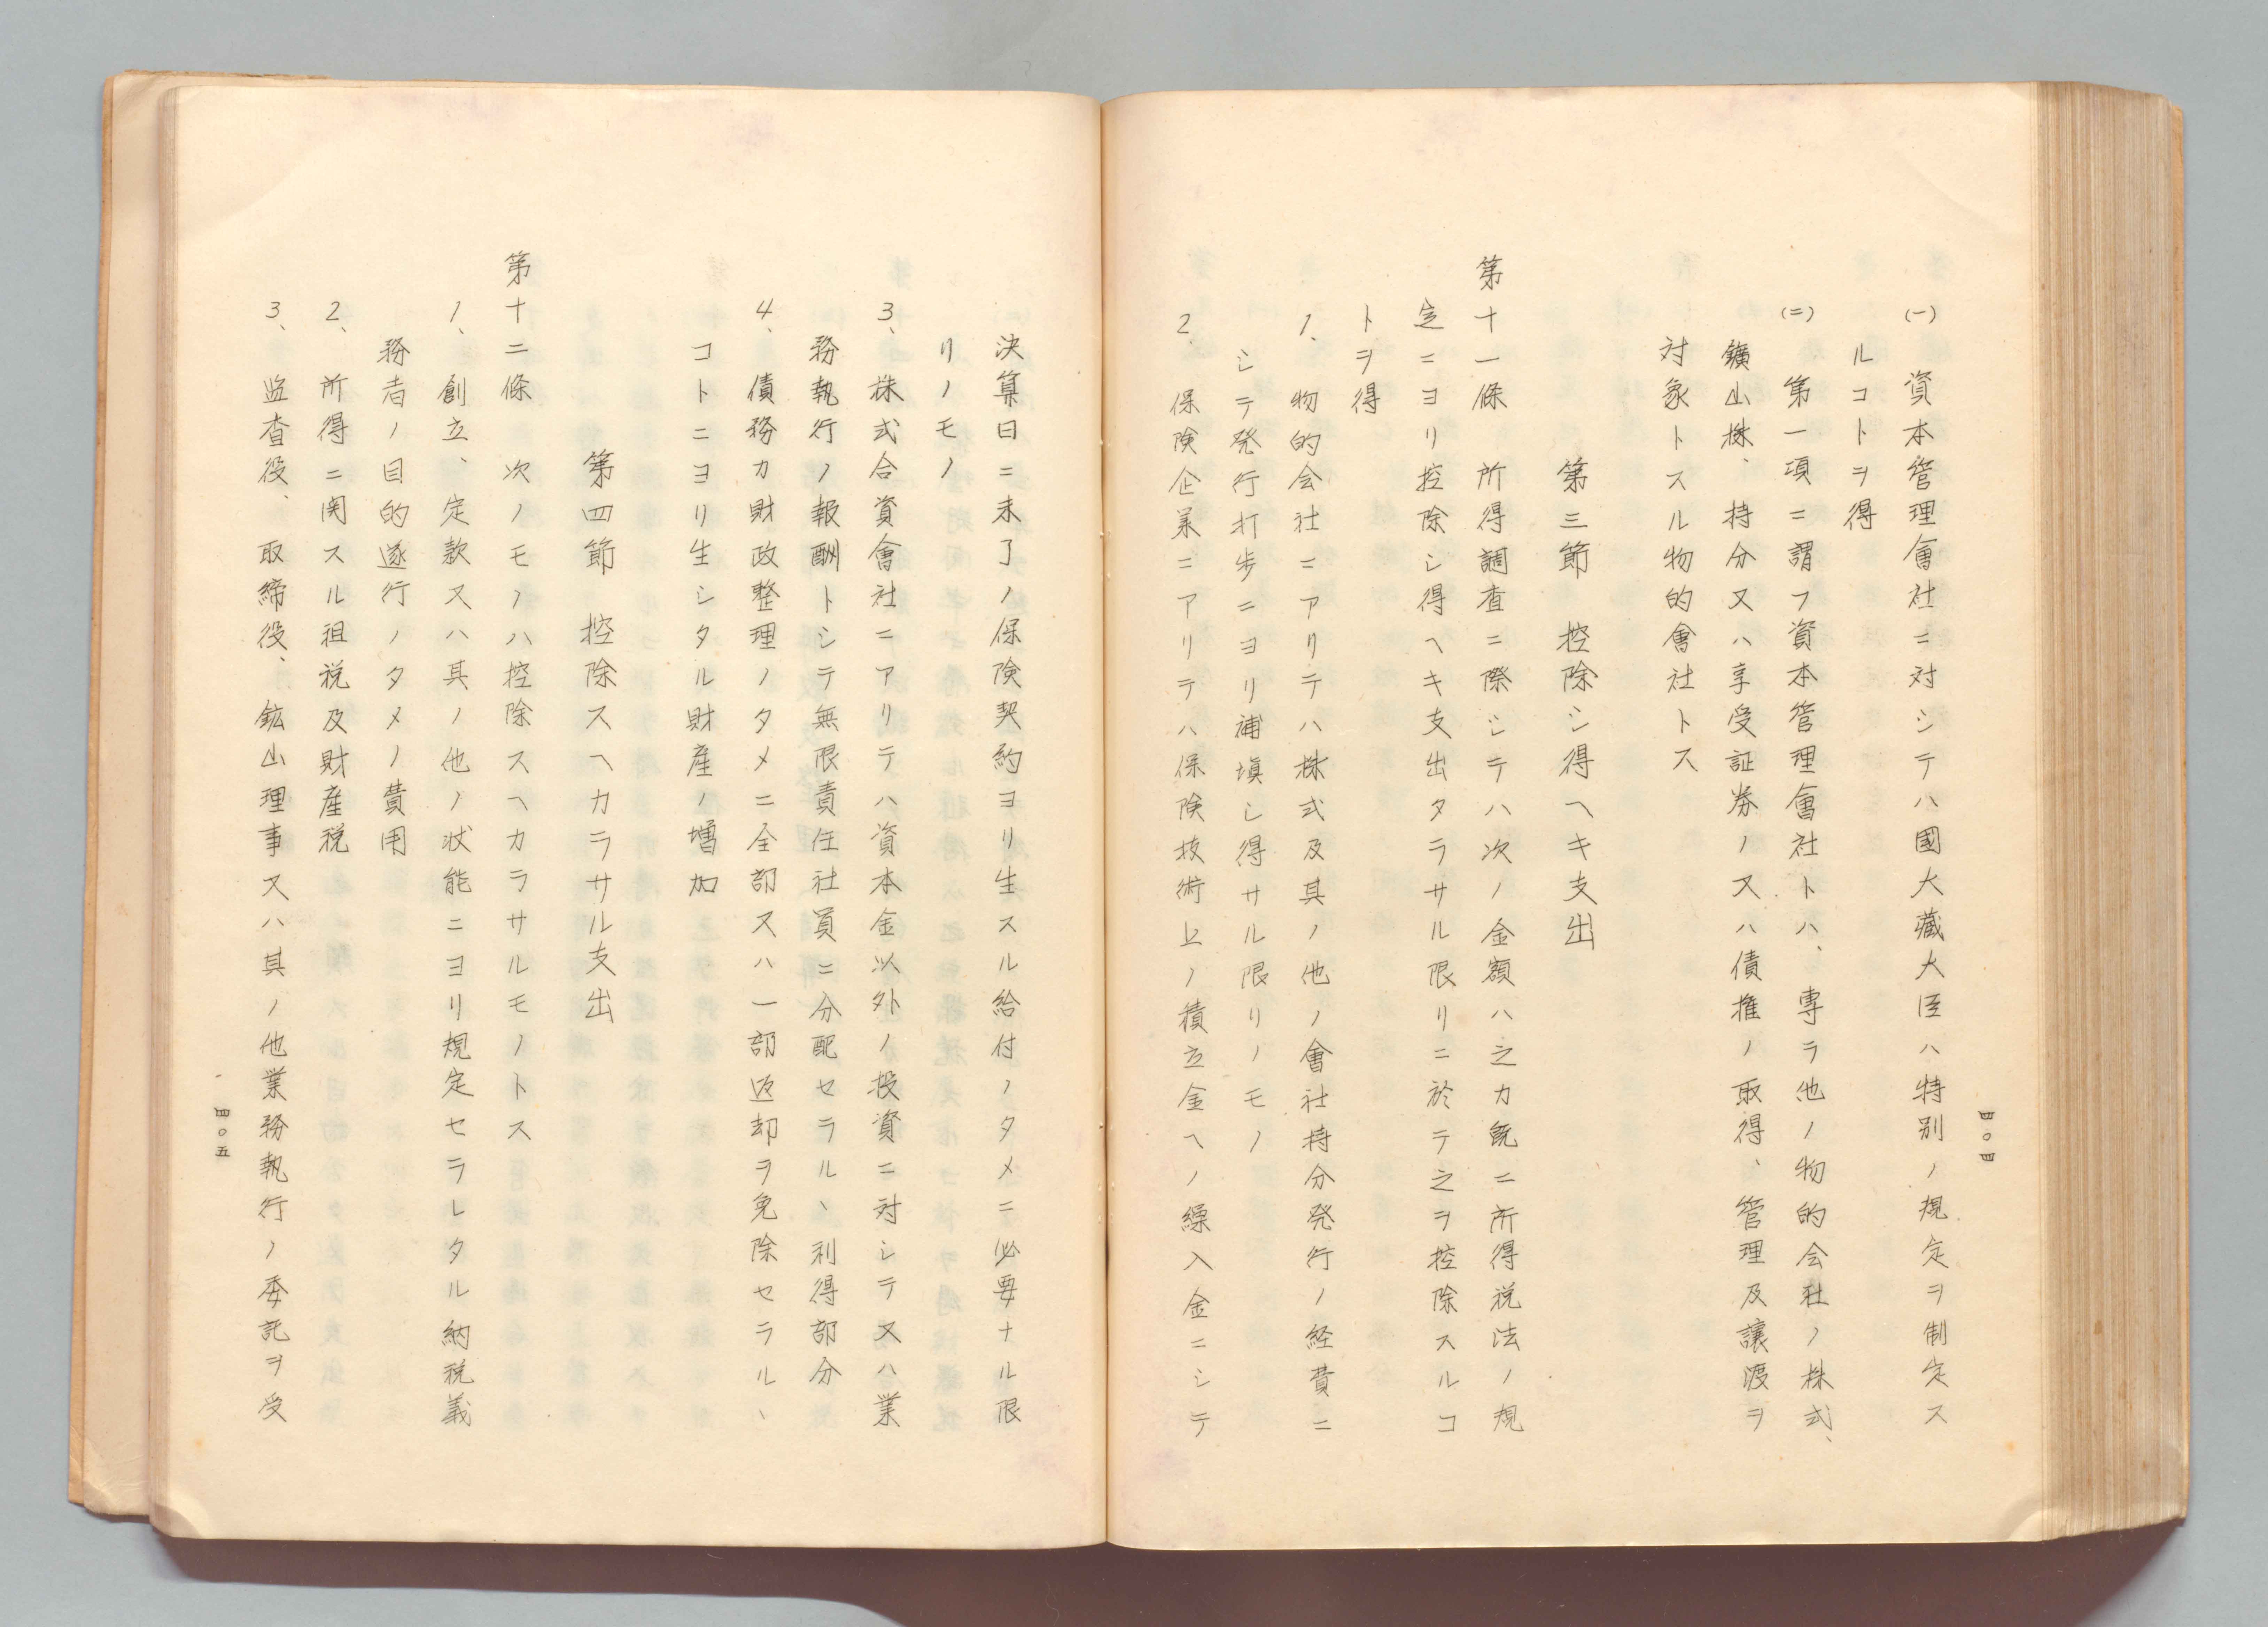 (一) 資本管理會社ニ対シテハ國大藏大臣ハ特別ノ規定ヲ制定ス
ルコトヲ得
(二) 第一項ニ謂フ資本管理會社トハ、専ラ他ノ物的会社ノ株式、
鑛山株、持分又ハ享受証券ノ又ハ債権ノ取得、管理及讓渡ヲ
対象トスル物的會社トス
第三節 控除シ得ヘキ支出
第十一條 所得調査ニ際シテハ次ノ金額ハ之カ既ニ所得税法ノ規
定ニヨリ控除シ得ヘキ支出タラサル限リニ於テ之ヲ控除スルコ
トヲ得
1、物的会社ニアリテハ株式及其ノ他ノ會社持分発行ノ経費ニ
シテ発行打歩ニヨリ補塡シ得サル限リノモノ
2. 保険企業ニアリテハ保険技術上ノ積立金ヘノ繰入金ニシテ
四〇四
決算日ニ未了ノ保険契約ヨリ生スル給付ノタメニ必要ナル限
リノモノ
3、株式合資會社ニアリテハ資本金以外ノ投資ニ対シテ又ハ業
務執行ノ報酬トシテ無限責任社員ニ分配セラルヽ利得部分
4、債務カ財政整理ノタメニ全部又ハ一部返却ヲ免除セラルヽ
コトニヨリ生シタル財産ノ増加
第四節 控除スヘカラサル支出
第十二條 次ノモノハ控除スヘカラサルモノトス
1、創立、定款又ハ其ノ他ノ状能ニヨリ規定セラレタル納税義
務者ノ目的遂行ノタメノ費用
2、所得ニ関スル租税及財産税
3、監査役、取締役、鉱山理事又ハ其ノ他業務執行ノ委託ヲ受
四〇五